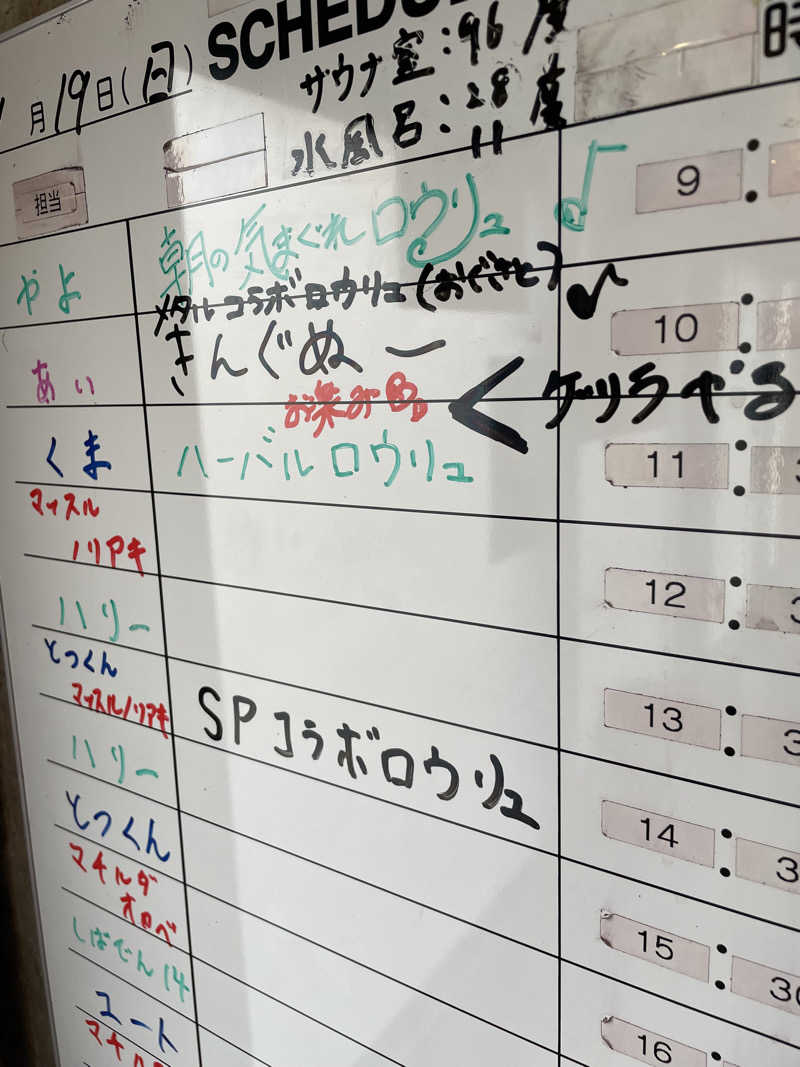 SCHEDU
月19日(日)
サウナ室:96度
水風呂:28度
11
時
担当
やよ
朝の気まぐれロウリュ
9 :
メタルコラボロウリュ(おぐさと)
あい
きんぐぬー
10 :
お楽みる。
<ケツラベる
くま
ハーバルロウリュ
11 :
マッスル
ノリアキ
12 :
ハリー
とっくん
マッスルノリアキ
SPコラボロウリュ
13 : 3
ハリー
14 : 3
とっくん
マチルダ
オロベ
15 : 30
しばでん14
ユート
16 :
マチル